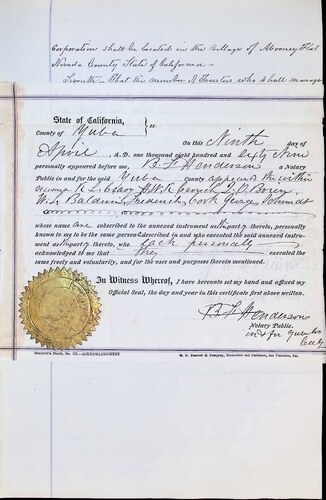 Corporation shall be located in the Village of Mooney Flat
Nevada County State of California –
Seventh – That the number of Trustees who shall manage
State of California, } ss.
County of Yuba
On this Ninth day of
April , A. D. one thousand eight hundred and sixty Nine
personally appeared before me, B. F. Henderson a Notary
Public in and for the said Yuba County appeared the within
W. L. Baldwin, Frederick Cook George Schmidt
whose name are subscribed to the annexed instrument as thparty thereto, personally
known to me to be the same person described in and who executed the said annexed instru-
ment as thparty thereto, who Each personally
acknowledged to me that they executed the
same freely and voluntarily, and for the uses and purposes therein mentioned.
In Witness Whereof, I have hereunto set my hand and affixed my
Official Seal, the day and year in this certificate first above written.
B F Henderson
Notary Public.
in & for Yuba Co
Bancroft's Blank, No. –ACKNOWLEDGMENT
H. H. Bancroft & Company, Booksellers and Stationers, San Francisco, Cal.